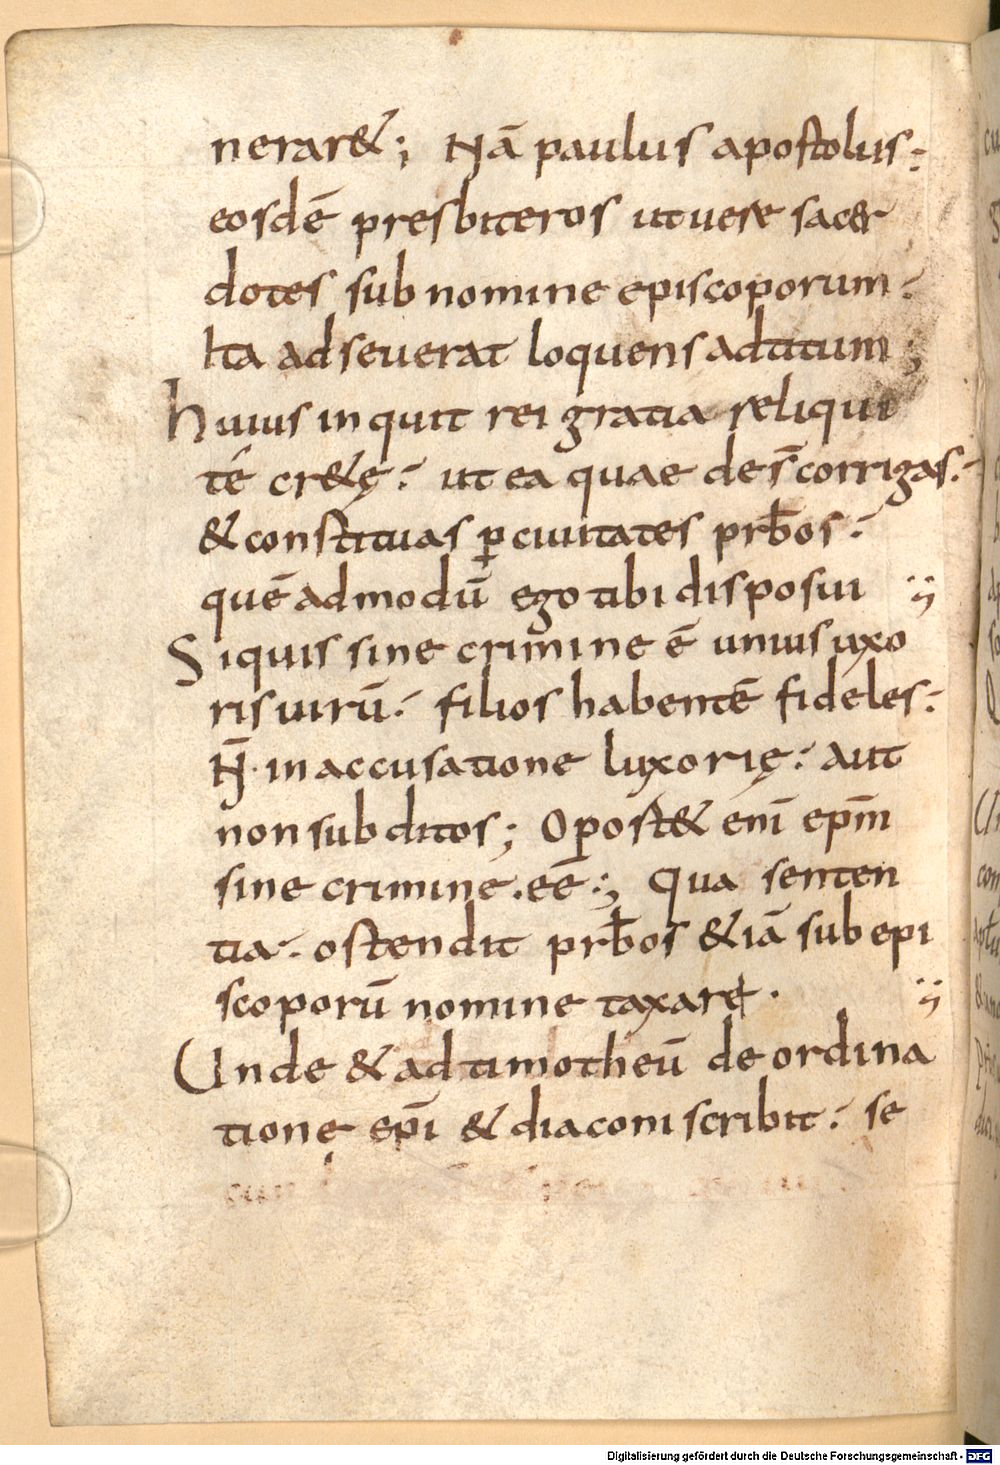 nerar&; Nā paulus apostolus:
eosdē presbiteros ut uere sacer
dotes sub nomine episcoporum:
Ita adseuerat loquens ad titum;
Huius inquit rei gratia reliqui
té cr&ę: ut ea quae des̄ corrigas:
& constituas ꝑ ciuitates prb̄os:
quēadmodū ego tibi disposui
Siquis sine crimine ē unius uxo
ris uirū: filios habentē fideles:
N̄ in accusatione luxorię: aut
non subditos; Oꝑost& enī ep̄m
sine crimine .eē:; Qua senten
tia: ostendit prb̄os & iā sub epi
scoporū nomine taxare.
Unde & ad timotheū de ordina
tione ep̄i & diaconi scribit: se
Digitalisierung gefördert durch die Deutsche Forschungsgemeinschaft - DFG